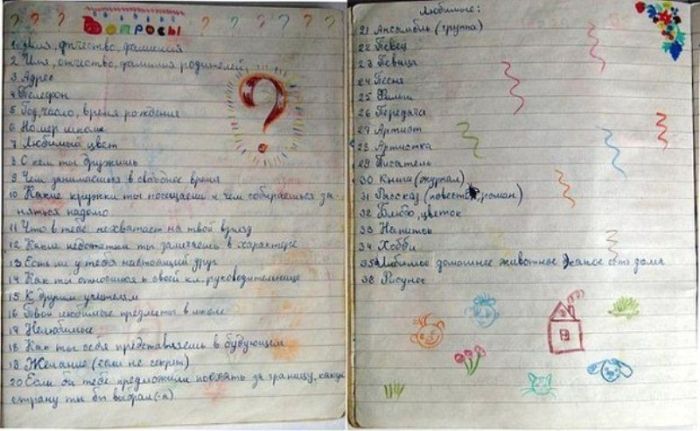 Вопросы
1 Имя, отчество, фамилия
2 Имя, отчество, фамилия родителей
3 Адрес
4 Телефон
5 Год, число, время рождения
6 Номер школы
7 Любимый цвет
8 С кем ты дружишь
9 Чем занимаешься в свободное время
10 Какие кружки ты посещаешь и чем собираешься за
няться надолго
11 Что в тебе не хватает на твой взгляд
12 Какие недостатки ты замечаешь в характере
13 Есть ли у тебя настоящий друг
14 Как ты относишься к своей кл. руководительнице
15 К другим учителям
16 Твои любимые предметы в школе
17 Нелюбимые
18 Как ты себя представляешь в будующем
19 Желание (если не секрет)
20 Если бы тебе предложили поехать за границу, какую
страну ты бы выбрал(-а)
Любимые:
21 Ансамбль (группа)
22 Певец
23 Певица
24 Песня
25 Фильм
26 Передача
27 Артист
28 Артистка
29 Писатель
30 Книга (журнал)
31 Рассказ (повесть, роман)
32 Блюдо, цветок
33 Напиток
34 Хобби
35 Любимое домашнее животное есть дома
36 Рисунок